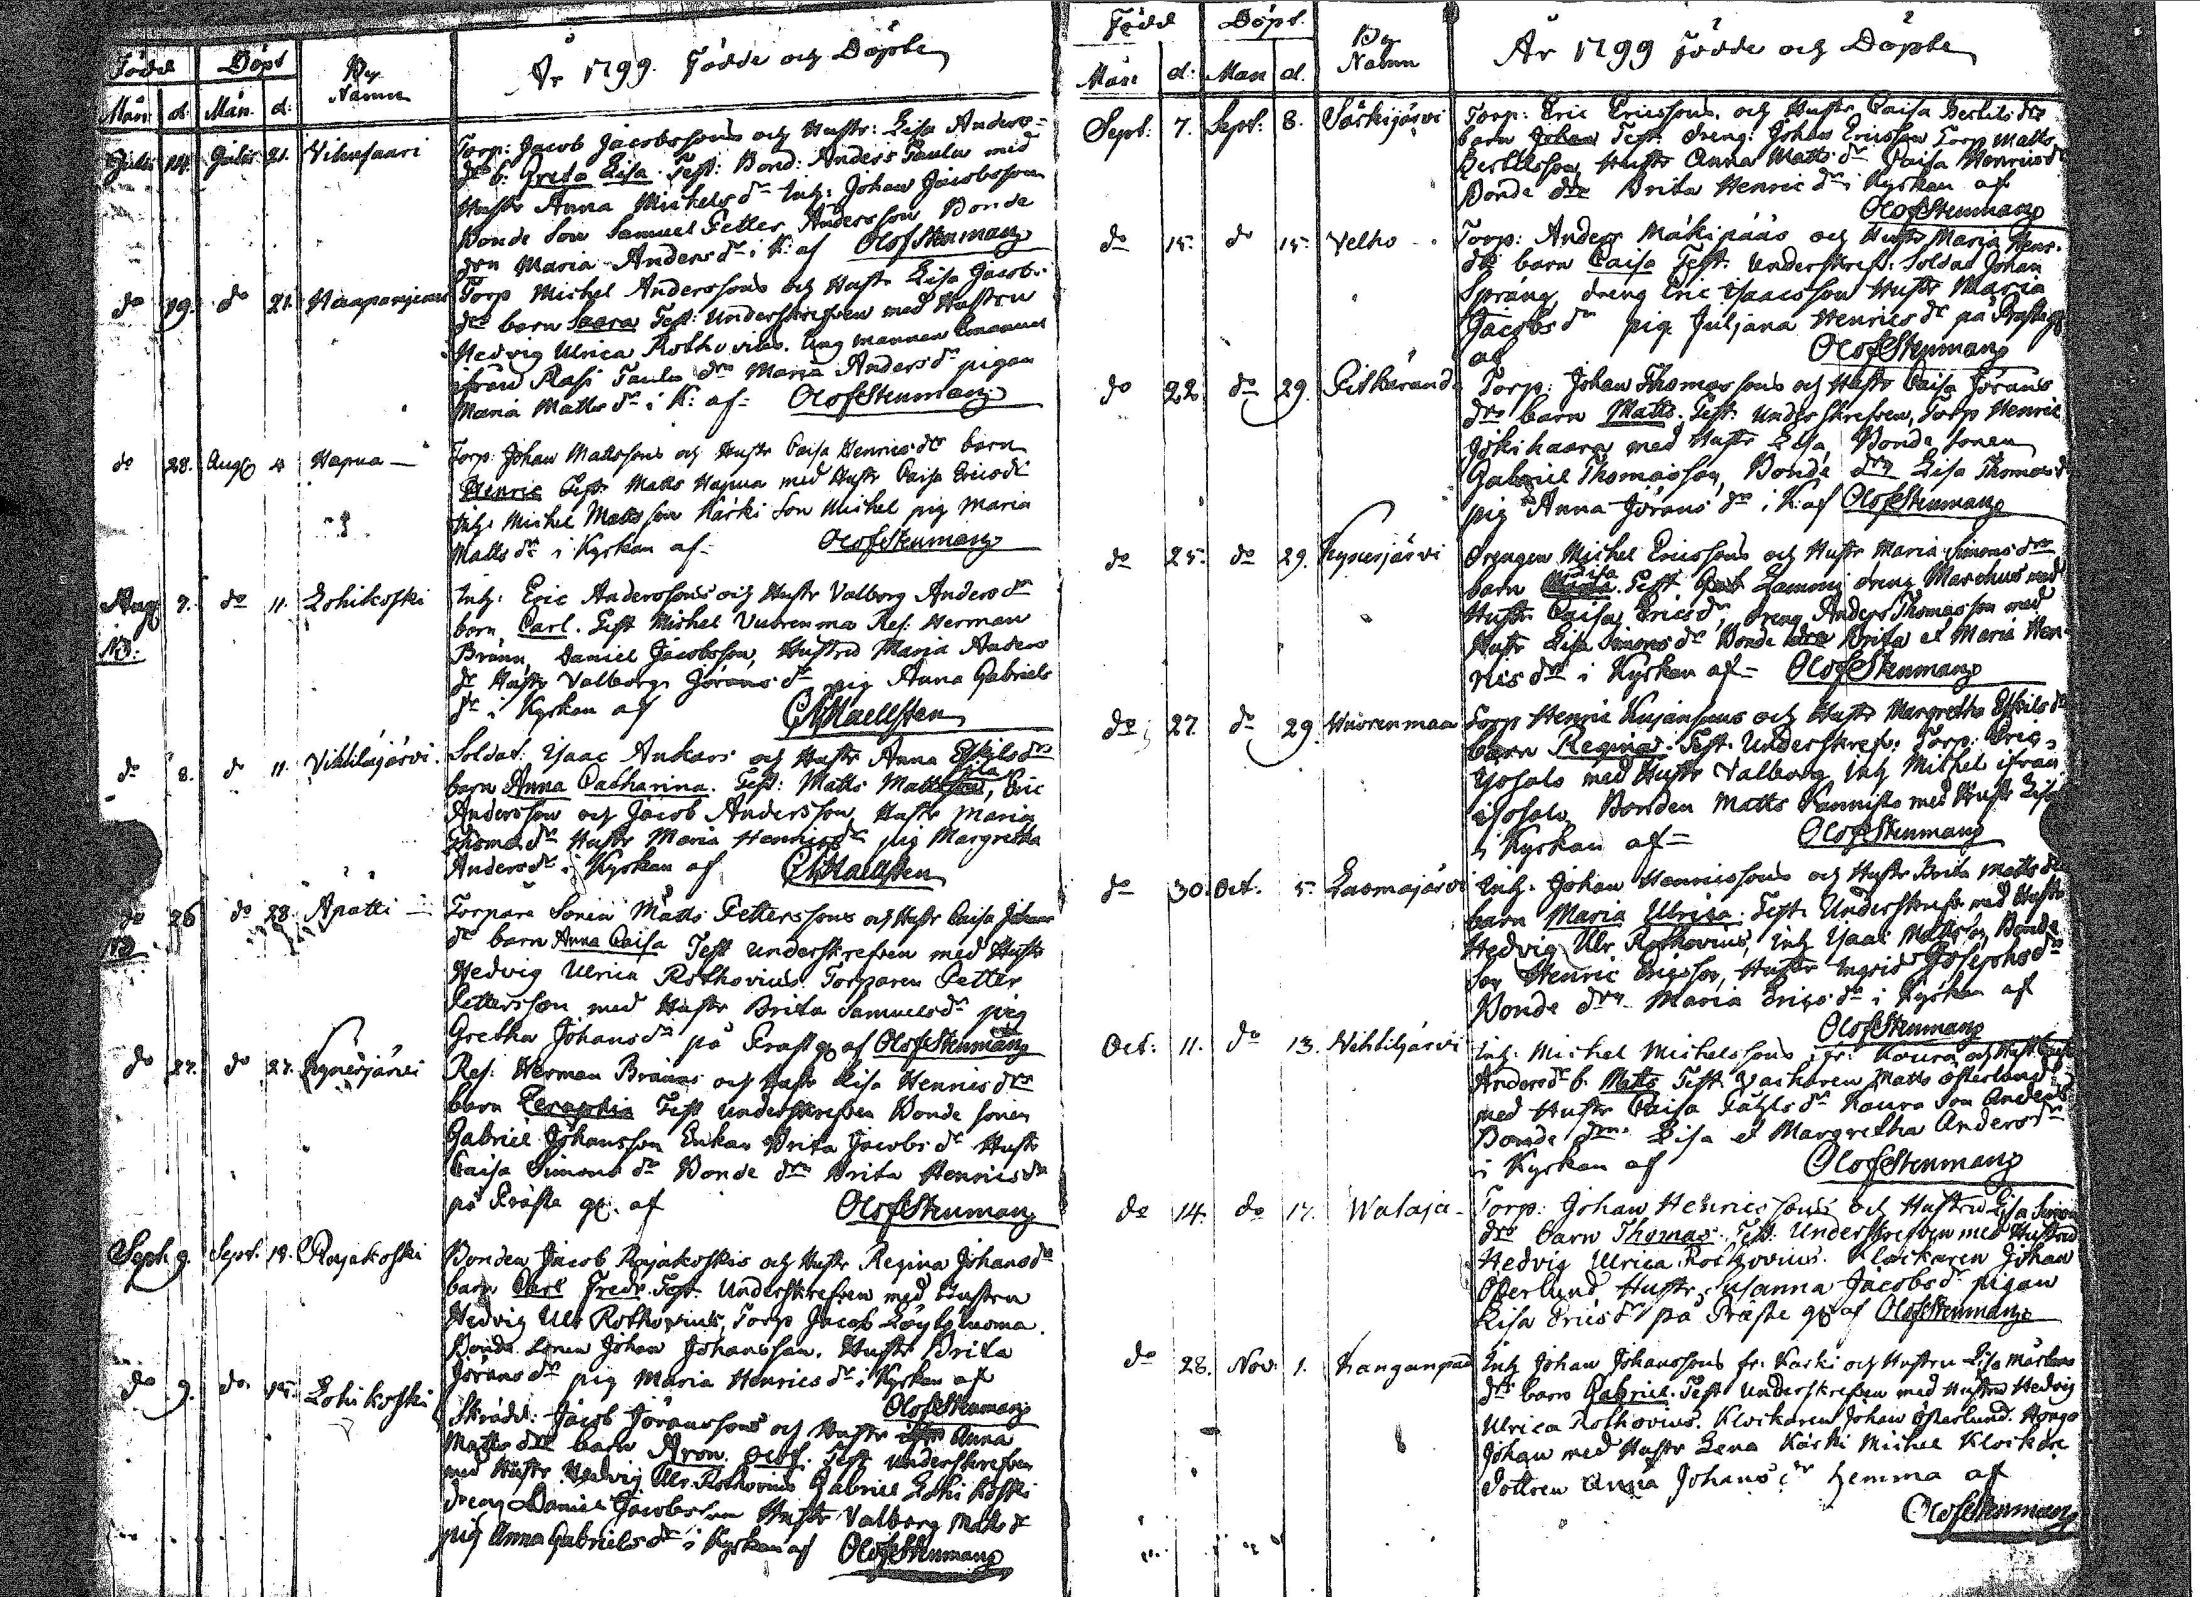 Född Döpt By Namn År 1799. Födde och Döpte
Mån. d. Mån. d:
Julii 14. Julii 21. Vihusaari Torp: Jacob Jacobssons och Hustr: Lisa Anders=
drs b: Greta Lisa. Test: Bond: Anders Paulu med
Hustr Anna Michels dr Inh: Johan Jacobsson
Bonde Son Samuel Petter Andersson Bonde
drn Maria Anders dr i K: af Olof Stenman
do 19. do 21. Torp Michel Anderssons och Hustr Lisa Jacobs
drs barn Saara Test: Underskrefven med Hustrun
Hedvig Ulrica Rothovius. Ung mannen Emanuel
ifrån Rasi Paulu drn Maria Anders dr pigan
Maria Matts dr i K: af= Olof Stenman
do 28. Aug 4 Hapua — Torp: Johan Mattssons och Hustr Caisa Henrics drs barn
Henric Test: Matts Hapua med Hustr Caisa Erics dr
Inh: Michel Mattsson Kärki Son Michel pig Maria
Matts dr i Kyrkan af- Olof Stenman
Aug 7. do 11. Lohikoski Inh: Eric Anderssons och Hustr Valborg Anders dr
barn Carl. Test Michel Vuorenmaa Ref: Herman
NB: Brunn, Daniel Jacobsson, Hustru Maria Anders
dr Hustr Valborg Jörans dr pig Anna Gabriels
dr i Kyrkan af
do 8. do 11. Vihtiläjärvi. Soldat: Isaac Ankars och Hustr Anna Eskils drs
barn Anna Catharina. Test: Matts Matts, Eric
Andersson och Jacob Andersson, Hustr Maria
Thomas dr Hustr Maria Henrics dr pig Margretha
Anders dr i Kyrkan af
do 26 do 28. Apatti — Torpare Sonen Matts Petterssons och Hustr Caisa Johans
NB dr barn Anna Caisa Test underskrefven med Hustr
Hedvig Ulrica Rothovius. Torparen Petter
Pettersson med Hustr Brita Samuels dr pig
Gretha Johans dr på Prästg af Olof Stenman
do 27. do 27. Kynäsjärvi Ref: Herman Brunns och Hustr Lisa Henrics drs
barn Test underskrefven Bonde sonen
Gabriel Johansson Enkan Brita Jacobs dr Hustr
Caisa Simons dr Bonde drn Brita Henrics dr
på Präste g. af Olof Stenman
Sept 9. Sept. 19. Rajakoski Bonden Jacob Rajakoskis och Hustr Regina Johans dr
barn Carl Fredr. Test. Underskrefven med Hustrun
Hedvig Ulr Rothovius, Torp Jacob
Bonde Sonen Johan Johansson. Hustr Brita
Jörans dr pig Maria Henrics dr i Kyrkan af
Olof Stenman
do 9. do. 15. Lohikoski Skrädd: Jacob Jöranssons och Hustr Anna
Matts drs barn Aron Olof. Test underskrefven
med Hustr Hedvig Ulr. Rothovius Gabriel Lohi koski
dreng Daniel Jacobsson Hustr Valborg Matts dr
pig Anna Gabriels dr i Kyrkan af Olof Stenman
Född Döpt. By Namn År 1799 Födde och Döpte
Mån d: Mån d.
Sept: 7. Sept: 8. Särkijärvi Torp: Eric Ericssons, och Hustr Caisa Bertils drs
barn Johan Test. dreng: Johan Ericsson Torp Matts
Bertilsson, Hustr Anna Matts dr Caisa Henrics dr
Bonde drn Brita Henrics dr i Kyrkan af
Olof Stenman
do 15. do 15. Velho - . Torp: Anders Mäkipääs och Hustr Maria Henr.
drs barn Caisa Test: Underskref: Soldat Johan
Språng, dreng Eric Isaacsson Hustr Maria
Jacobs dr pig. Juljana Henrics dr på Prästeg
af Olof Stenman
do 22. do 29. Pitkäranda Torp: Johan Thomassons och Hustr Caisa Jörans
drs barn Matts. Test: Underskrefven, Torp Henric
med Hustr Lisa, Bonde sonen
Gabriel Thomasson, Bonde drn Lisa Thomas dr
pig Anna Jörans dr i K: af Olof Stenman
do 25. do 29. Kynäsjärvi Drengen Michel Ericssons och Hustr Maria Simons drs
barn Lisa. Test Lammi dreng Marchus med
Hustr Caisa Erics dr, Dreng Anders Thomasson med
Hustr Lisa Simons dr Bonde drn Brita et Maria Hen-
rics drr i Kyrkan af= Olof Stenman
do 27. do 29. Vuorenmaa Torp Henric och Hustr Margretha Eskils dr
barn Regina. Test. Underskref: Torp: Eric
Isosalo med Hustr Valborg Inh Michel ifrån
Isosalo, Bonden Matts Kannisto med Hustr Lisa
i Kyrkan af= Olof Stenman
do 30. Oct. 5. Lasmajärvi Inh: Johan Henricssons och Hustr Brita Matts dr
barn Maria Ulrica. Test. Underskrefv med Hustr
Hedvig Ulr Rothovius, Inh Isaac Mattsson, Bonde
Son Henric Ericsson, Hustr Ingrid Josephs dr
Bonde drn Maria Erics dr i Kyrkan af
Olof Stenman
Oct: 11. do 13. Vihtiljärvi Inh: Michel Michelssons fr: Koura och Hust: Caisa
Anders dr b. Matts Test. Matts Österlund
med Hustr Caisa dr Koura Son Anders
Bonde drn. Lisa et Margretha Anders dr
i Kyrkan af Olof Stenman
do 14. do 17. Walaja - Torp: Johan Henricssons och Hustru Lisa Simons
drs barn Thomas. Test: Underskrefven med Hustru
Hedvig Ulrica Rothovius. Klockaren Johan
Österlund Hustr Susanna Jacobs dr pigan
Lisa Erics dr på Präste g af Olof Stenman
do 28. Nov: 1. Kanganpää Inh Johan Johanssons fr: Karki och Hustru Lisa Mårtens
drs barn Gabriel. Test Underskrefven med Hustru Hedvig
Ulrica Rothovius. Klockaren Johan Österlund. Hongo
Johan med Hustr Lena Kärki Michel Klockare
dottren Anna Johans dr hemma af
Olof Stenman